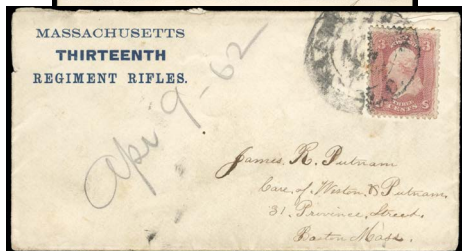 MASSACHUSETTS
THIRTEENTH
REGIMENT RIFLES.
3 3
THREE
CENTS
Apr 9-62
James R. Putnam
Care of Weston & Putnam,
31. Province Street.
Boston Mass.